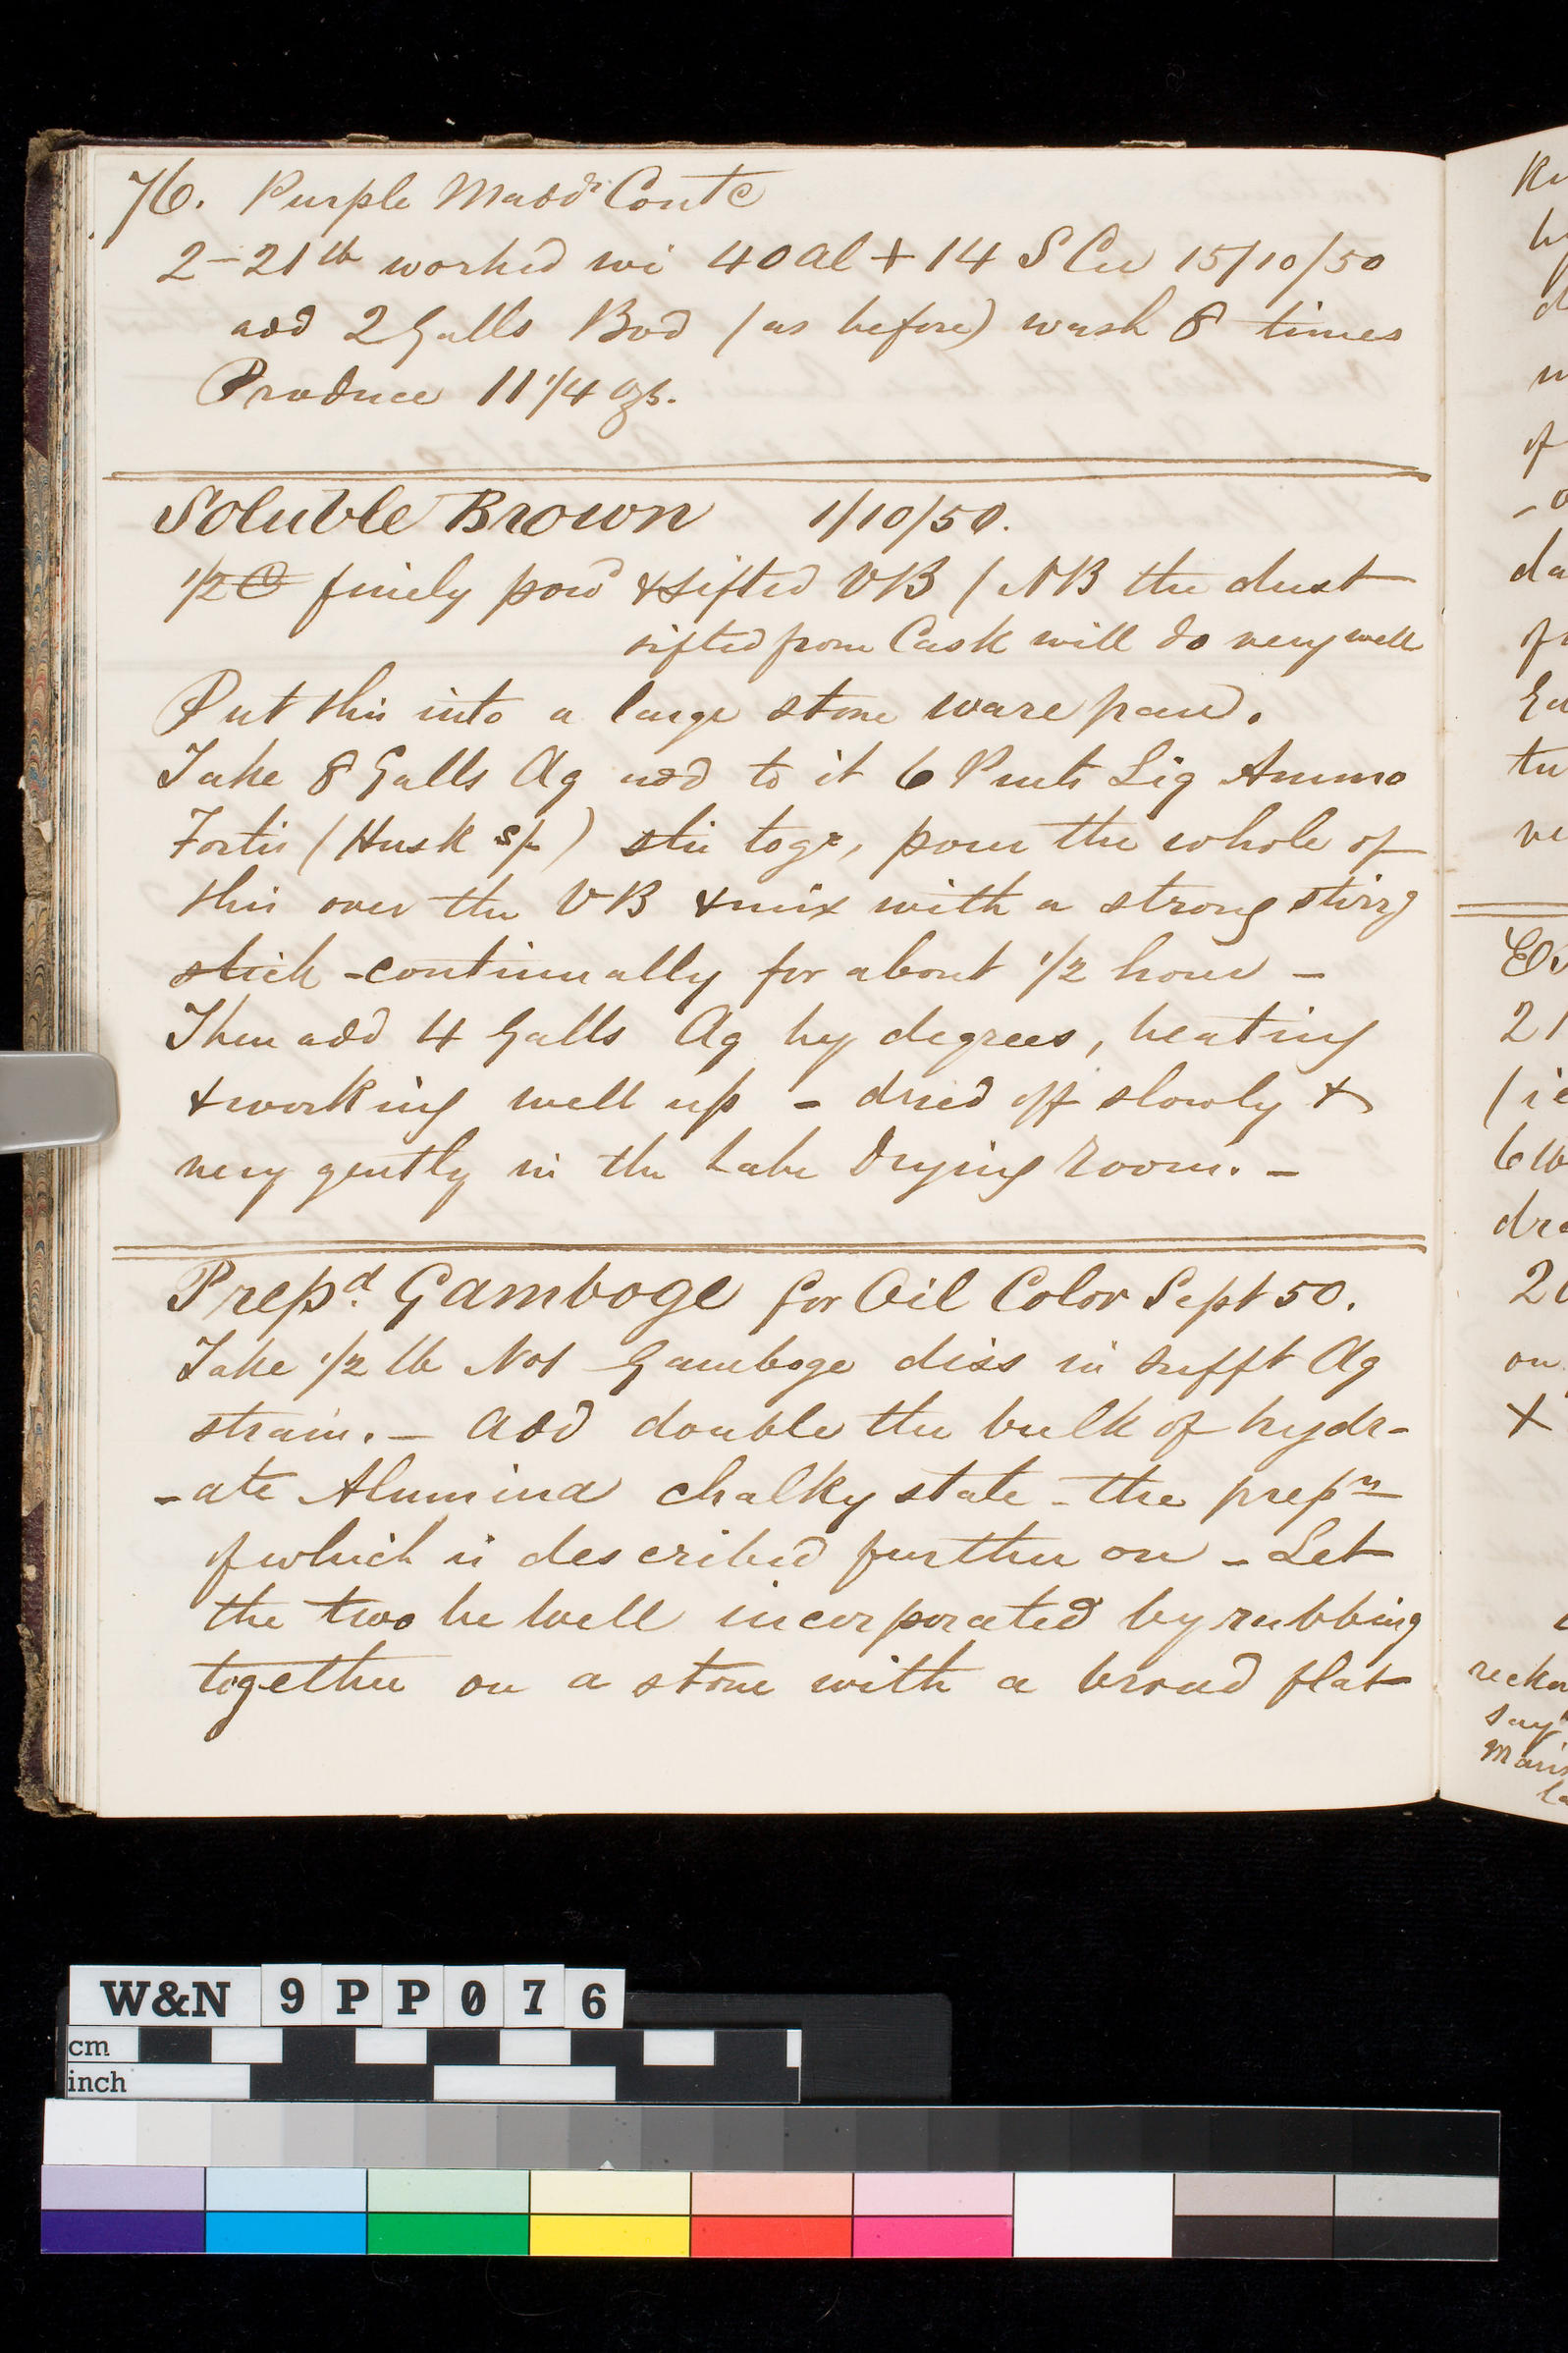 76. Purple Maddr Contd
2 - 21 lb worked wi 40 Al + 14 S Cu 15/10/50
add 2 Galls Bod (as before) wash 8 times
Produce 11 1/4 ozs.
Soluble Brown 1/10/50.
1/2 C finely powd & sifted VB / NB the dust
sifted from Cask will do very well
Put this into a large stone ware pan.
Take 8 Galls Aq add to it 6 Pints Liq Ammo
Fortis (Husk sp) stir togr, pour the whole of
this over the VB & mix with a strong stirrg
stick - continually for about 1/2 hour -
Then add 4 Galls Aq by degrees, beating
& working well up - dried off slowly &
very gently in the Lake Drying Room. -
Prepd. Gamboge for Oil Color Sept 50.
Take 1/2 lb No1 Gamboge diss in sufft Aq
strain. - Add double the bulk of hydr-
-ate Alumina chalky state - the prepn
of which is described further on - Let
the two be well incorporated by rubbing
together on a stone with a broad flat
W&N 9PP076
cm
inch